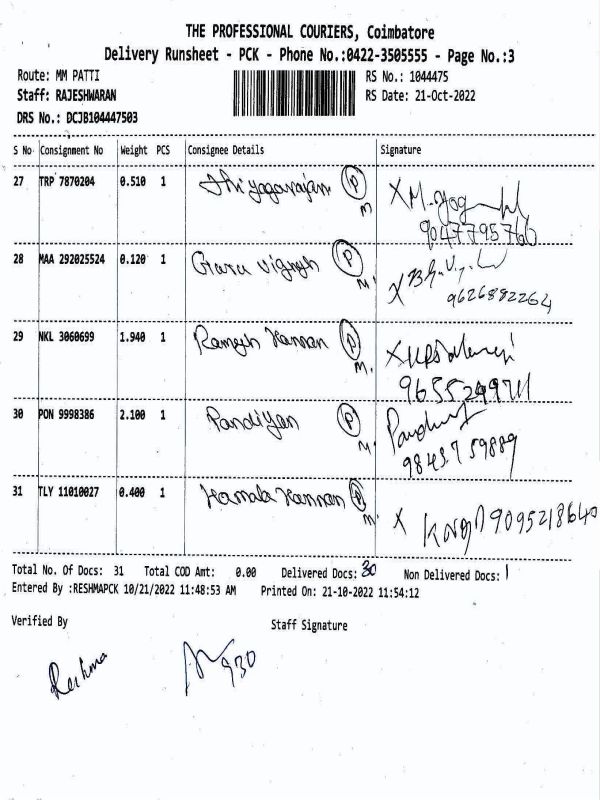 THE PROFESSIONAL COURIERS, Coimbatore
Delivery Runsheet - PCK - Phone No.:0422-3505555 - Page No.:3
Route: MM PATTI RS No.: 1044475
Staff: RAJESHWARAN RS Date: 21-Oct-2022
DRS No.: DCJB104447503
S No Consignment No Weight PCS Consignee Details Signature
27 TRP 7870204 0.510 1 Thiyagarajan P X M. Yog
M 9047795766
28 MAA 292025524 0.120 1 Guru Vignesh P X
M. 9626882264
29 NKL 3060699 1.940 1 Ramesh Kannan P X
M. 9655299711
30 PON 9998386 2.100 1 Pandiyan P
M. 9843759889
31 TLY 11010027 0.400 1 Kamala Kannan P
M. X 9095218640
Total No. Of Docs: 31 Total COD Amt: 0.00 Delivered Docs: 30 Non Delivered Docs: 1
Entered By :RESHMAPCK 10/21/2022 11:48:53 AM Printed On: 21-10-2022 11:54:12
Verified By Staff Signature
Reshma 930